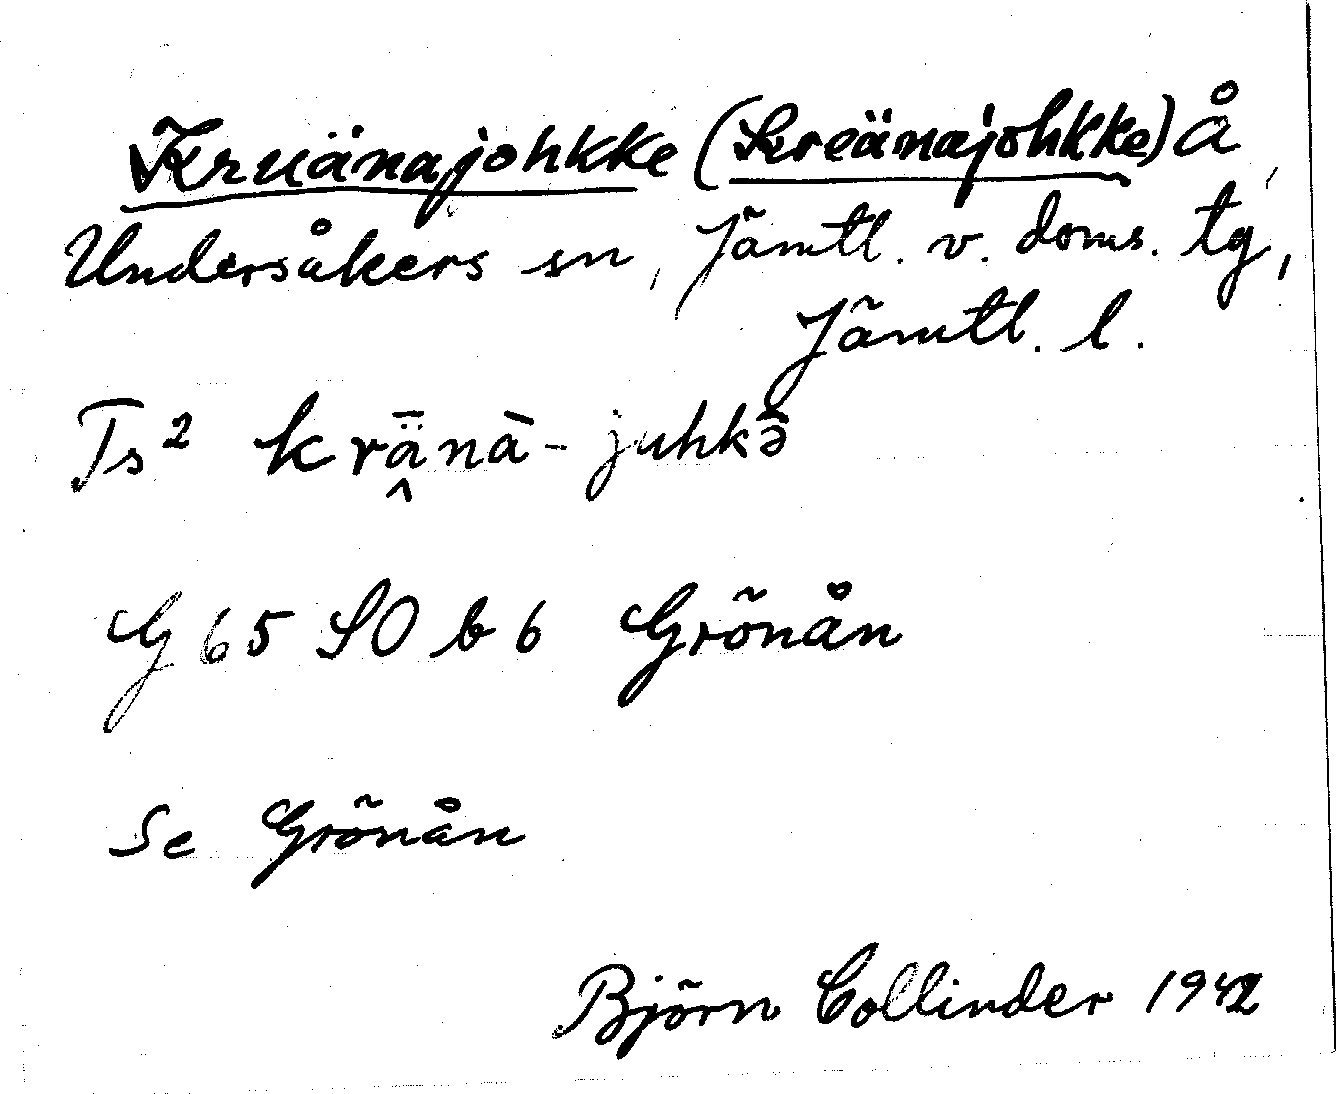 Kruänajohkke (Kreänajohkke) å,
Undersåkers sn, Jämtl. v. doms. tg,
Jämtl. l.
Ts² krǟ̭nà-juhkə̄
G 65 SO b 6 Grönån
Se Grönån
Björn Collinder 1942